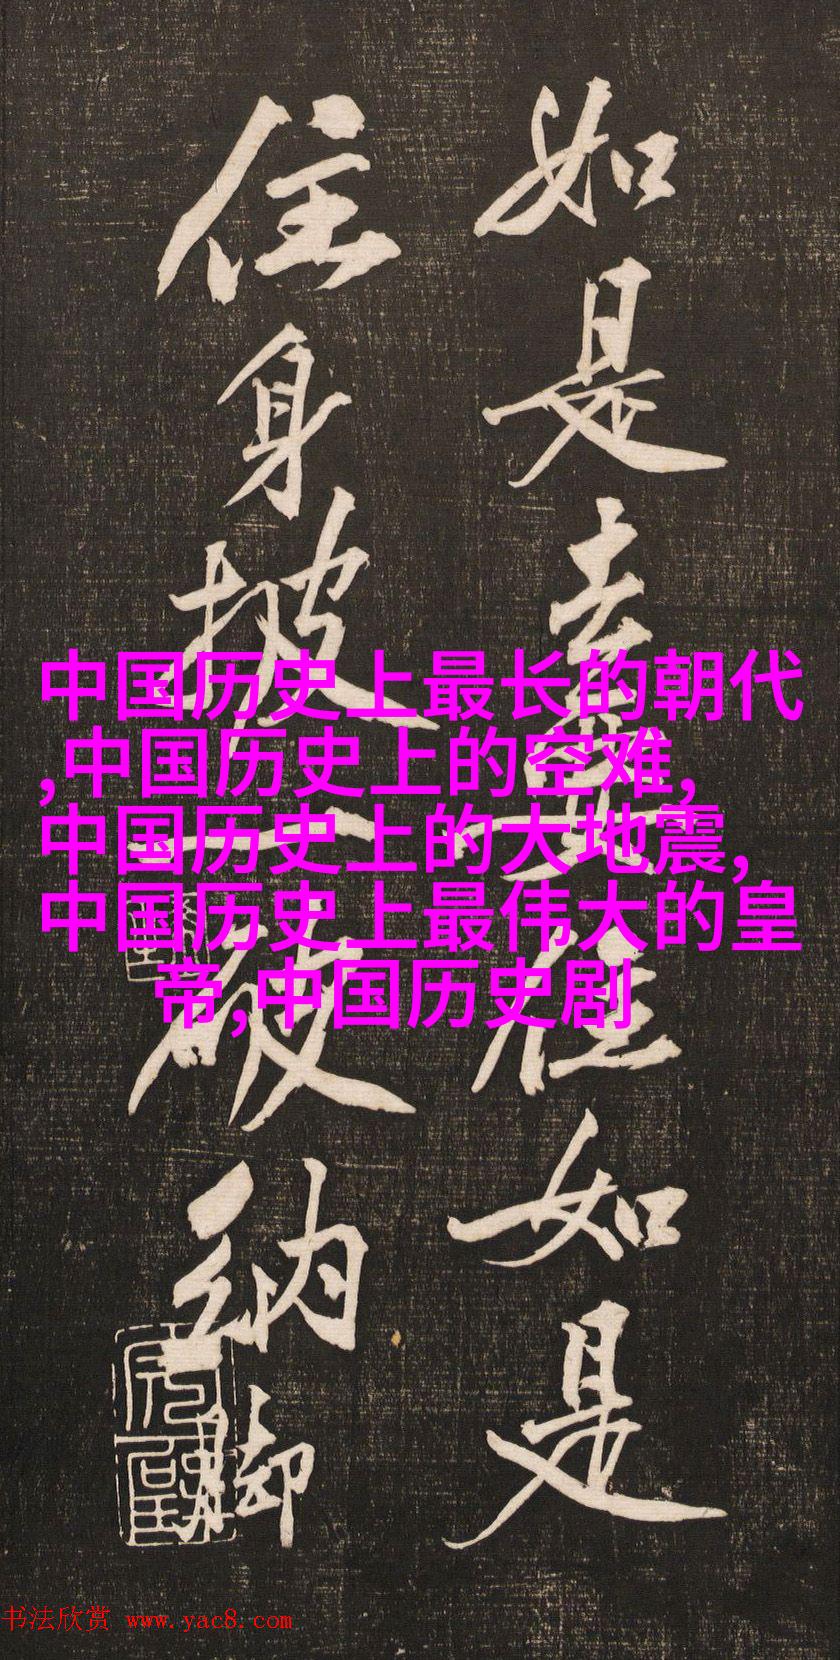 如是去住如是
住身披一破納脚
中国历史上最长的朝代
,中国历史上的空难,
中国历史上的大地震,
中国历史上最伟大的皇
帝,中国历史剧
书法欣赏 www.yac8.com